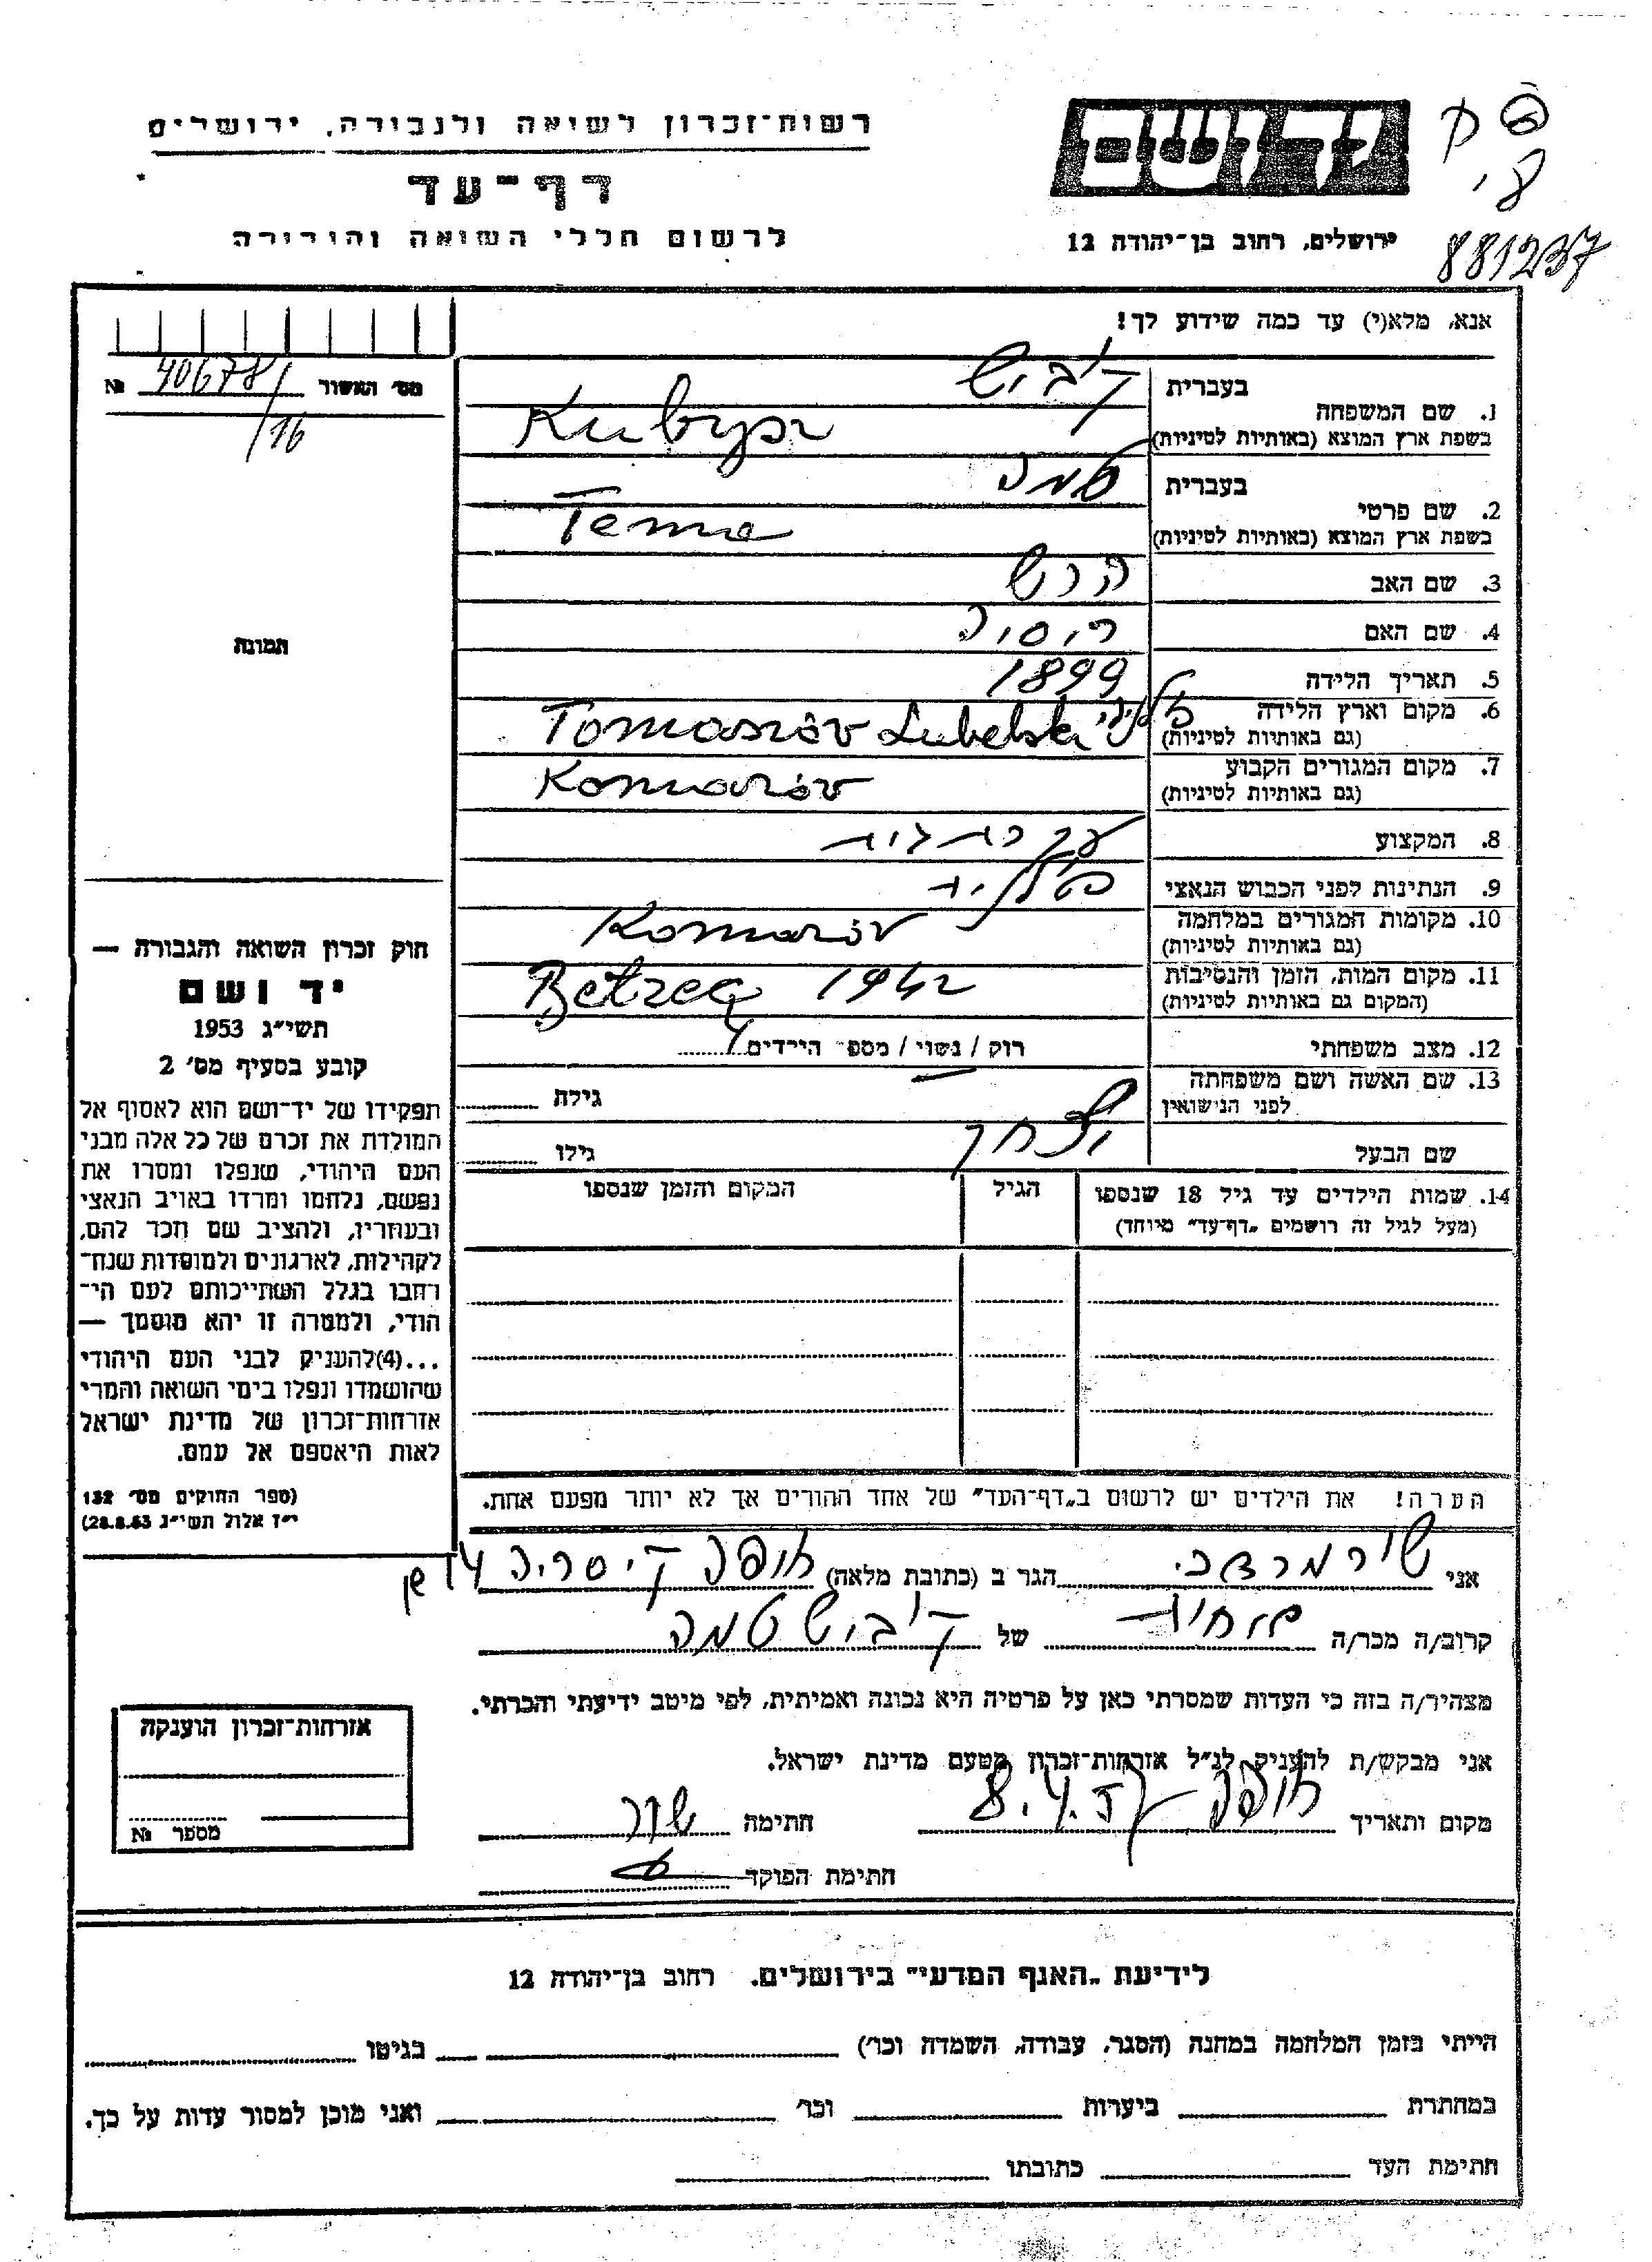 רשות־זכרון לשואה ולגבורה, ירושלים
דף־עד
לרשום חללי השואה והגבורה
יד ושם
ירושלים, רחוב בן־יהודה 12
881237
אנא, מלא(י) עד כמה שידוע לך!
מס׳ האשור 40678/16 №
תמונה
1. שם המשפחה בעברית קוביש
בשפת ארץ המוצא (באותיות לטיניות) Kubysz
2. שם פרטי בעברית טמה
בשפת ארץ המוצא (באותיות לטיניות) Tema
3. שם האב הרש
4. שם האם
5. תאריך הלידה 1899
6. מקום וארץ הלידה
(גם באותיות לטיניות) Tomaszów Lubelski
7. מקום המגורים הקבוע
(גם באותיות לטיניות) Komarów
8. המקצוע עקרת בית
9. הנתינות לפני הכבוש הנאצי פולנית
10. מקומות המגורים במלחמה
(גם באותיות לטיניות) Komarów
11. מקום המות, הזמן והנסיבות
(המקום גם באותיות לטיניות) Bełżec 1942
12. מצב משפחתי רוק / נשוי / מספר הילדים 4
13. שם האשה ושם משפחתה
לפני הנישואין גילה
שם הבעל יצחק גילו
14. שמות הילדים עד גיל 18 שנספו הגיל המקום והזמן שנספו
(מעל לגיל זה רושמים „דף־עד״ מיוחד)
חוק זכרון השואה והגבורה —
יד ושם
תשי״ג 1953
קובע בסעיף מס׳ 2
תפקידו של יד־ושם הוא לאסוף אל
המולדת את זכרם של כל אלה מבני
העם היהודי, שנפלו ומסרו את
נפשם, נלחמו ומרדו באויב הנאצי
ובעוזריו, ולהציב שם וזכר להם,
לקהילות, לארגונים ולמוסדות שנח־
רבו בגלל השתייכותם לעם הי־
הודי, ולמטרה זו יהא מוסמך —
...(4)להעניק לבני העם היהודי
שהושמדו ונפלו בימי השואה והמרי
אזרחות־זכרון של מדינת ישראל
לאות היאספם אל עמם.
(ספר החוקים מס׳ 132
י״ז אלול תשי״ג 28.8.53)
הערה! את הילדים יש לרשום ב„דף־העד״ של אחד ההורים אך לא יותר מפעם אחת.
אני שור מרדכי הגר ב (כתובת מלאה) חיפה קיסריה 14
קרוב/ה מכר/ה אחות של קוביש טמה
מצהיר/ה בזה כי העדות שמסרתי כאן על פרטיה היא נכונה ואמיתית, לפי מיטב ידיעתי והכרתי.
אני מבקש/ת להעניק לנ״ל אזרחות־זכרון מטעם מדינת ישראל.
מקום ותאריך חיפה 8.4.57 חתימה שור
חתימת הפוקד
אזרחות־זכרון הוענקה
מספר №
לידיעת „האגף המדעי״ בירושלים. רחוב בן־יהודה 12
הייתי בזמן המלחמה במחנה (הסגר, עבודה, השמדה וכו׳) בגיטו
במחתרת ביערות וכו׳ ואני מוכן למסור עדות על כך.
חתימת העד כתובתו